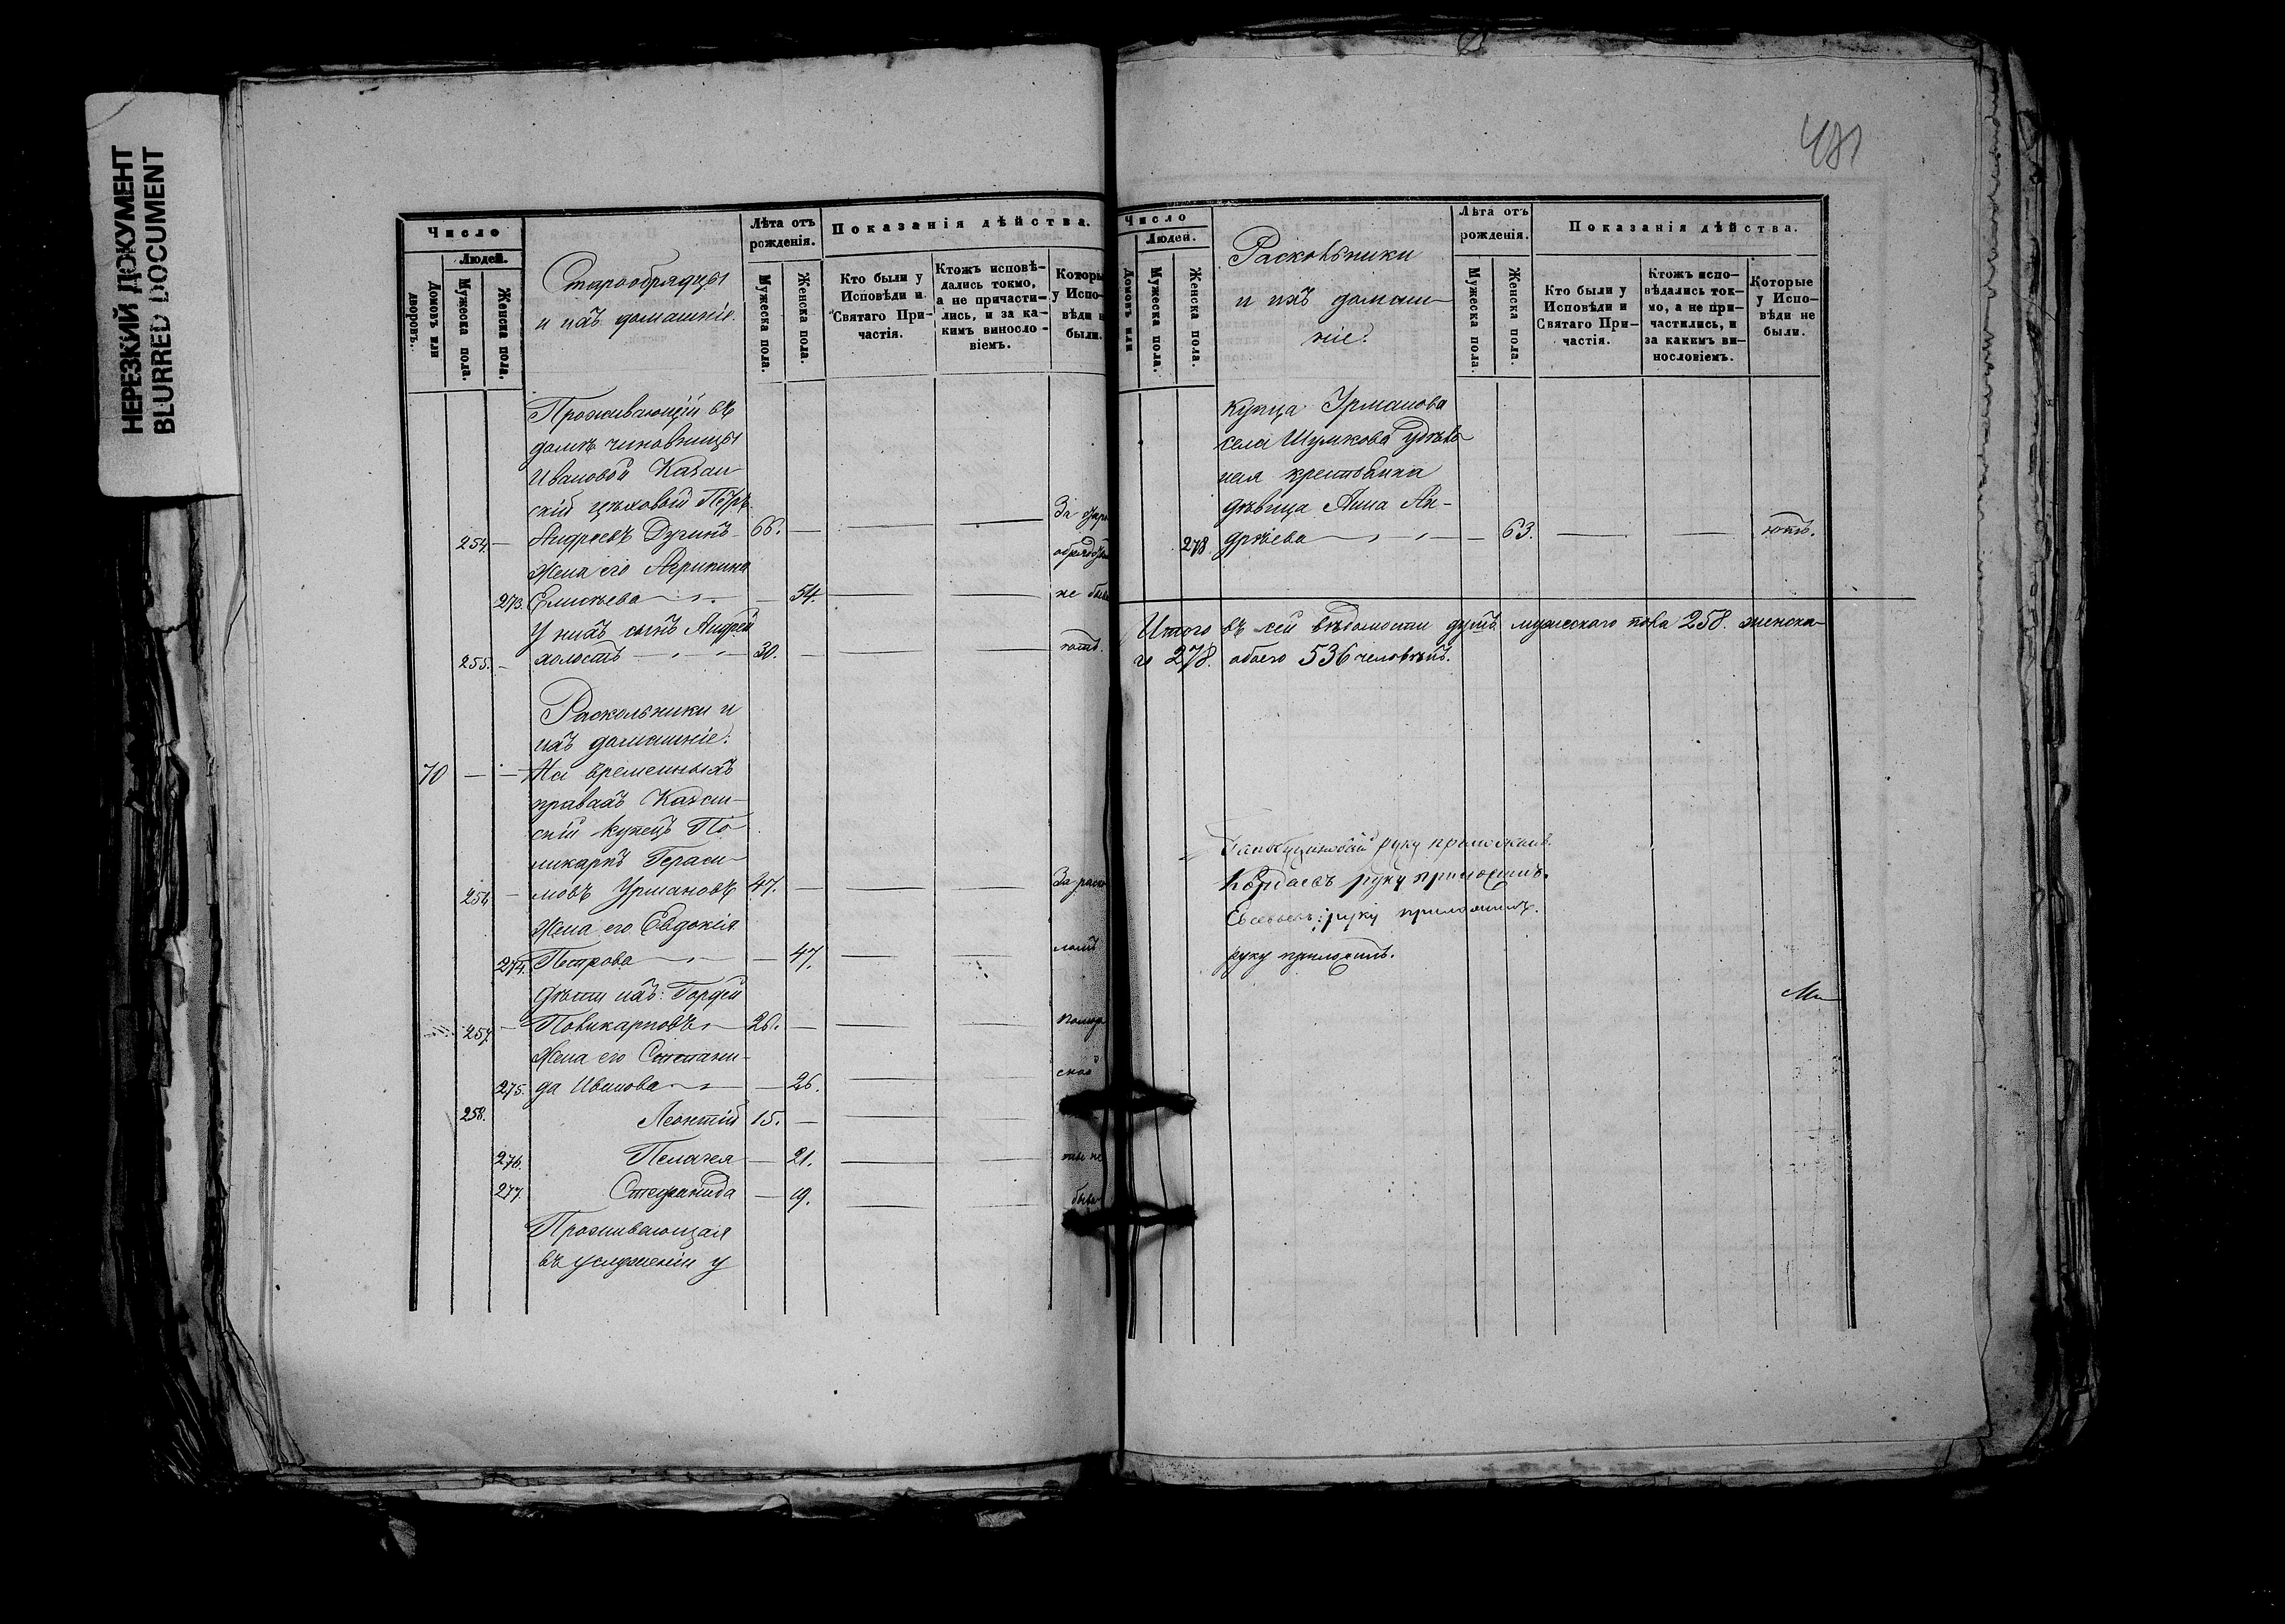 НЕРЕЗКИЙ ДОКУМЕНТ
BLURRED DOCUMENT
Число
Людей.
Домовъ или дворовъ.
Мужеска пола.
Женска пола.
Старообрядцы
и ихъ домашніе.
Лѣта отъ рожденія.
Мужеска пола.
Женска пола.
Показанія дѣйства.
Кто были у Исповѣди и Святаго Причастія.
Ктожъ исповѣ-
дались токмо,
а не причасти-
лись, и за ка-
кимъ виносло-
віемъ.
Которы
у Испо-
вѣди н
были.
Проживающій въ
домѣ чиновницы
Ивановой Казан-
скій цѣховый Петръ
254. — Андреевъ Дугинъ — 66. — За стар
Жена его Агрипина обрядств
273. Елисѣева — 54. не быва
У нихъ сынъ Андрей
255. — холостъ — 30. — ютъ.
Раскольники и
ихъ домашніе:
70 — — На временныхъ
правахъ Казан-
скій купецъ По-
ликарпъ Гераси-
256. — мовъ Урмановъ 47. — За раско
Жена его Евдокія
274. Петрова — 47. ломъ
Дѣти ихъ: Гордей
257. — Поликарповъ — 26. — помор
Жена его Степани-
275. да Иванова — 26. ской
258. Леонтій 15. —
276. Пелагея — 21. не
277. Степанида — 19. быва
Проживающая
въ услуженіи у
481
Число
Людей.
Домовъ или
Мужеска пола.
Женска пола.
Раскольники
и ихъ домаш-
ніе.
Лѣта отъ рожденія.
Мужеска пола.
Женска пола.
Показанія дѣйства.
Кто были у
Исповѣди и
Святаго При-
частія.
Ктожъ испо-
вѣдались ток-
мо, а не при-
частились, и
за какимъ ви-
нословіемъ.
Которые
у Испо-
вѣди не
были.
купца Урманова
села Шумкова удѣль-
ная крестьянка
дѣвица Анна Ан-
278. дрѣева — 63. — — ютъ.
Итого въ сей вѣдомости душъ мужескаго пола 258. женска-
го 278. обоего 536 человѣкъ.
руку приложилъ.
руку приложилъ.
Евсевьевъ руку приложилъ.
руку приложилъ.